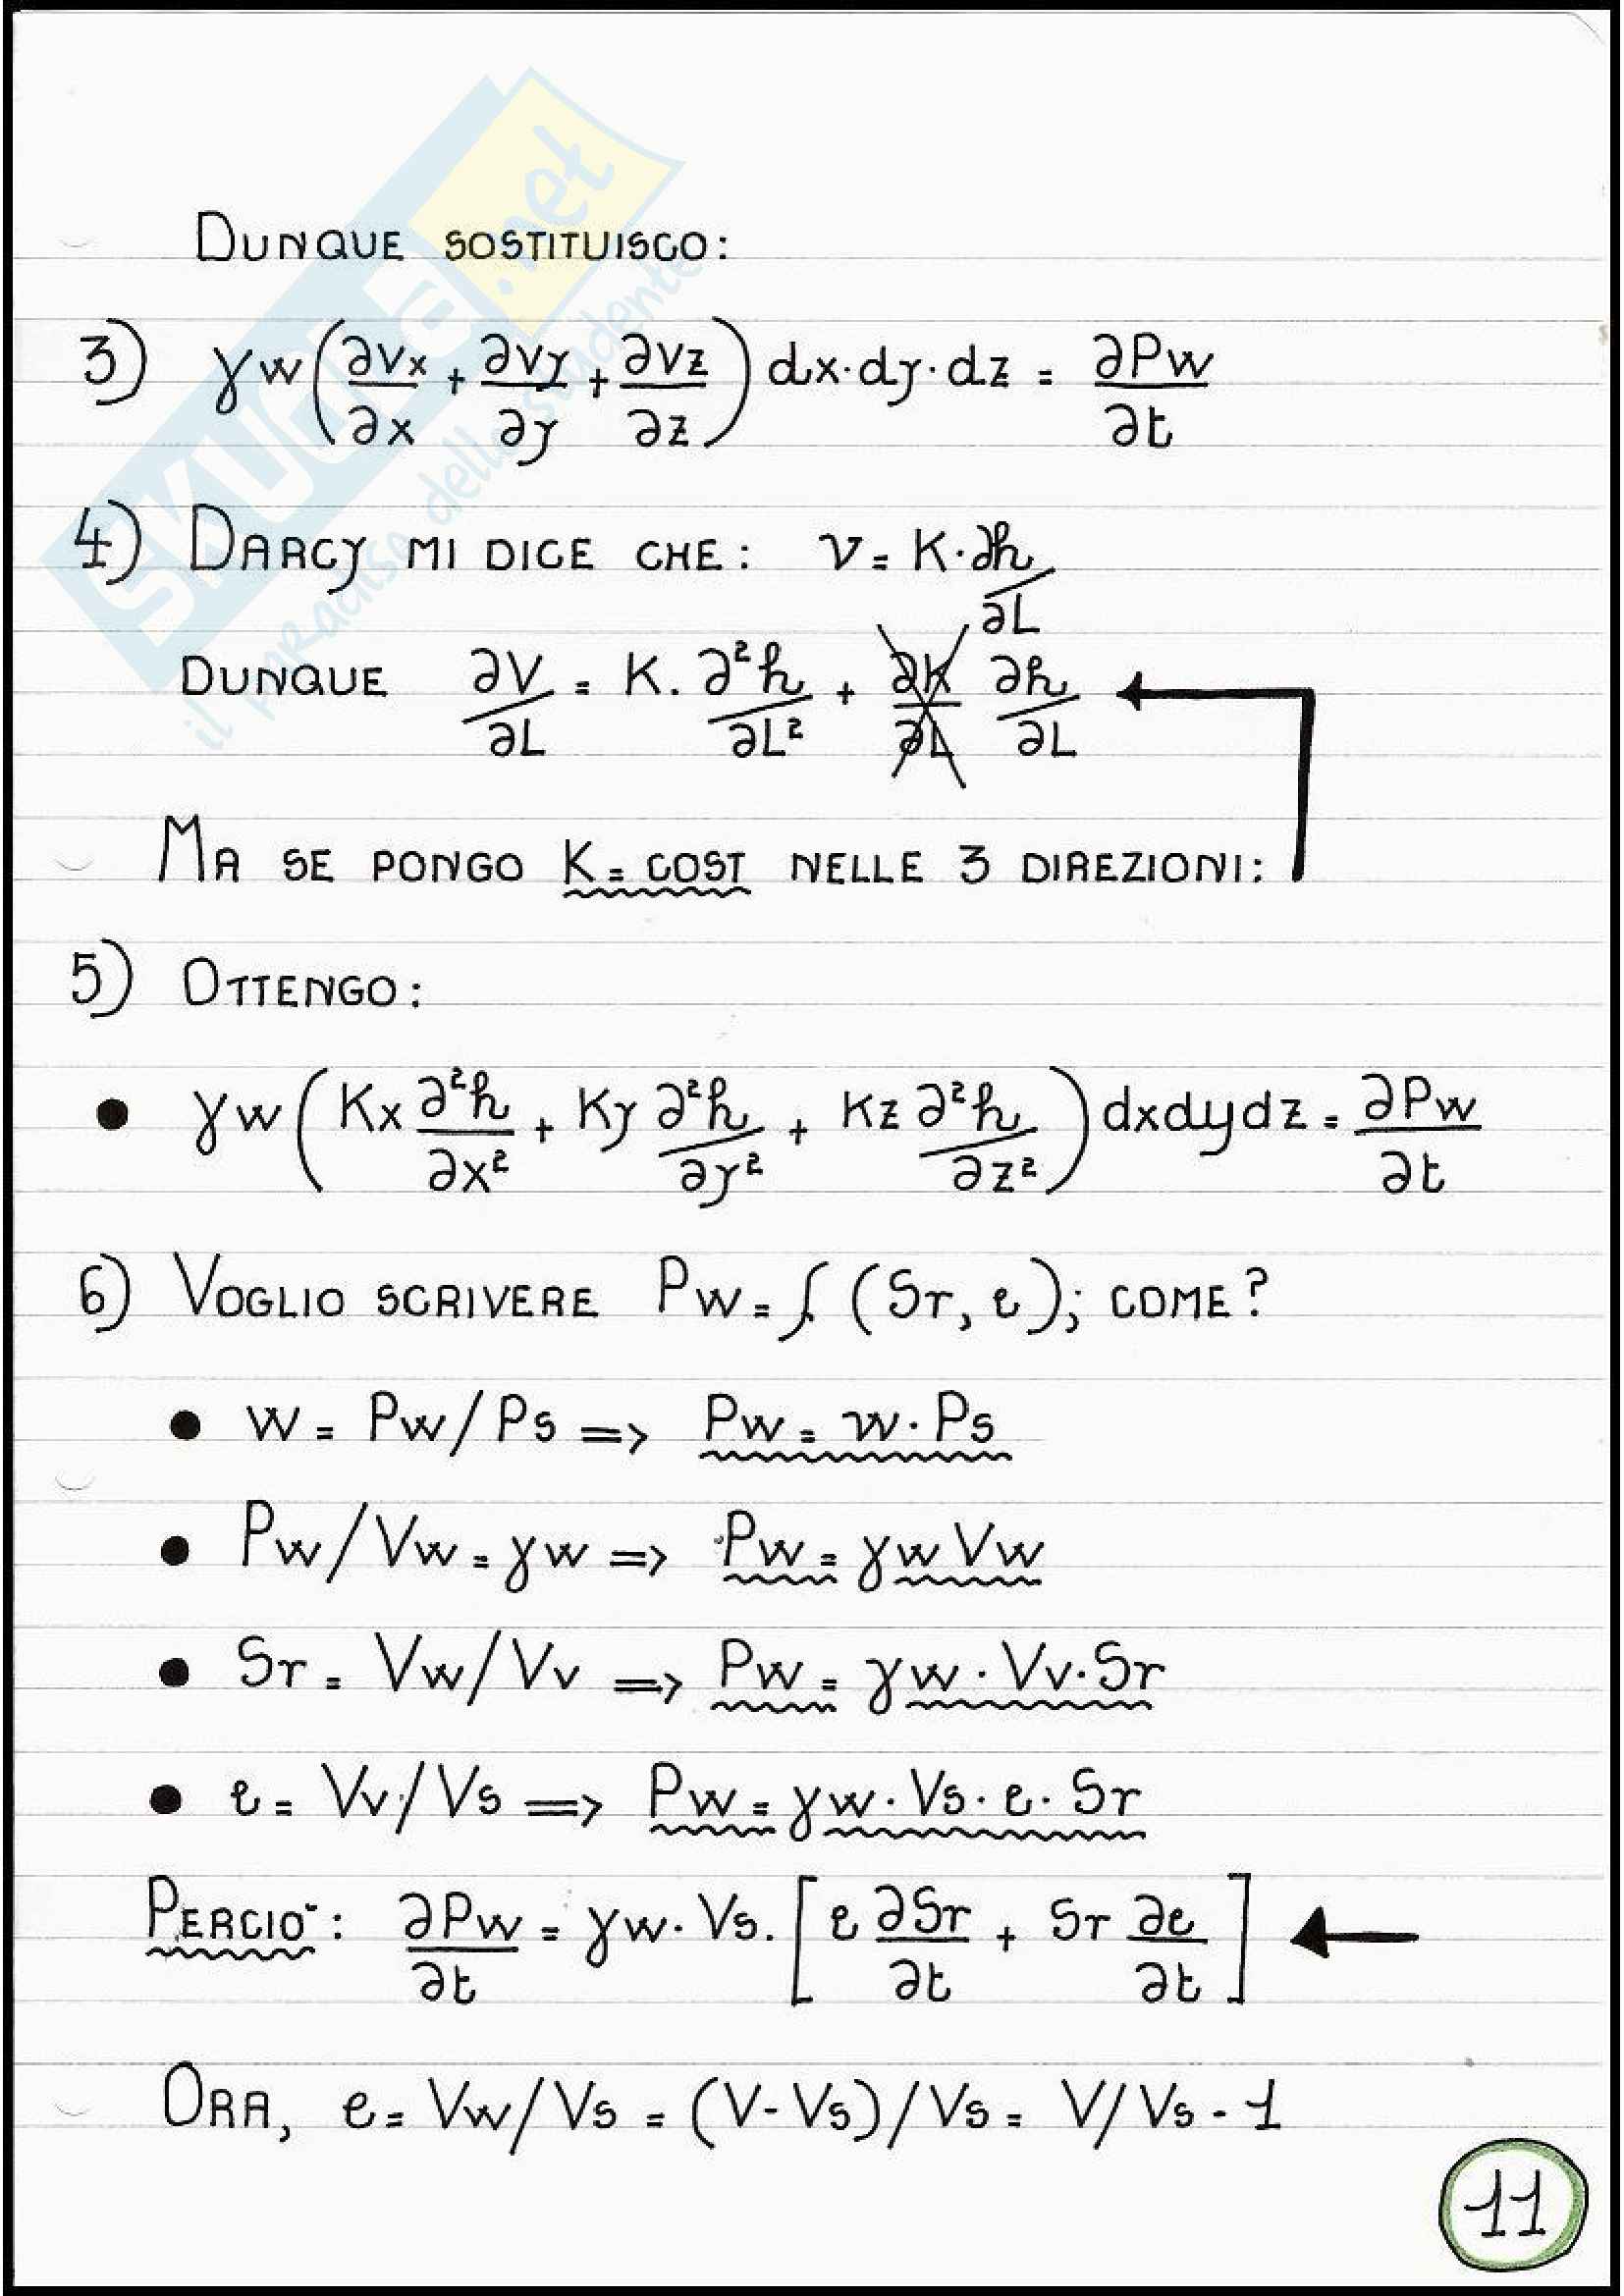 SKUOLA.net
il paradiso dello studente
DUNQUE SOSTITUISCO:
3) γw(∂vx/∂x + ∂vy/∂y + ∂vz/∂z) dx·dy·dz = ∂Pw/∂t
4) DARCY MI DICE CHE: v = K·∂h/∂L
DUNQUE ∂V/∂L = K·∂²h/∂L² + ∂K/∂L ∂h/∂L
MA SE PONGO K = COST NELLE 3 DIREZIONI:
5) OTTENGO:
● γw(Kx ∂²h/∂x² + Ky ∂²h/∂y² + Kz ∂²h/∂z²) dxdydz = ∂Pw/∂t
6) VOGLIO SCRIVERE Pw = f (Sr, e); COME?
● w = Pw/Ps => Pw = w·Ps
● Pw/Vw = γw => Pw = γw Vw
● Sr = Vw/Vv => Pw = γw·Vv·Sr
● e = Vv/Vs => Pw = γw·Vs·e·Sr
PERCIO': ∂Pw/∂t = γw·Vs·[e ∂Sr/∂t + Sr ∂e/∂t]
ORA, e = Vw/Vs = (V-Vs)/Vs = V/Vs - 1
11